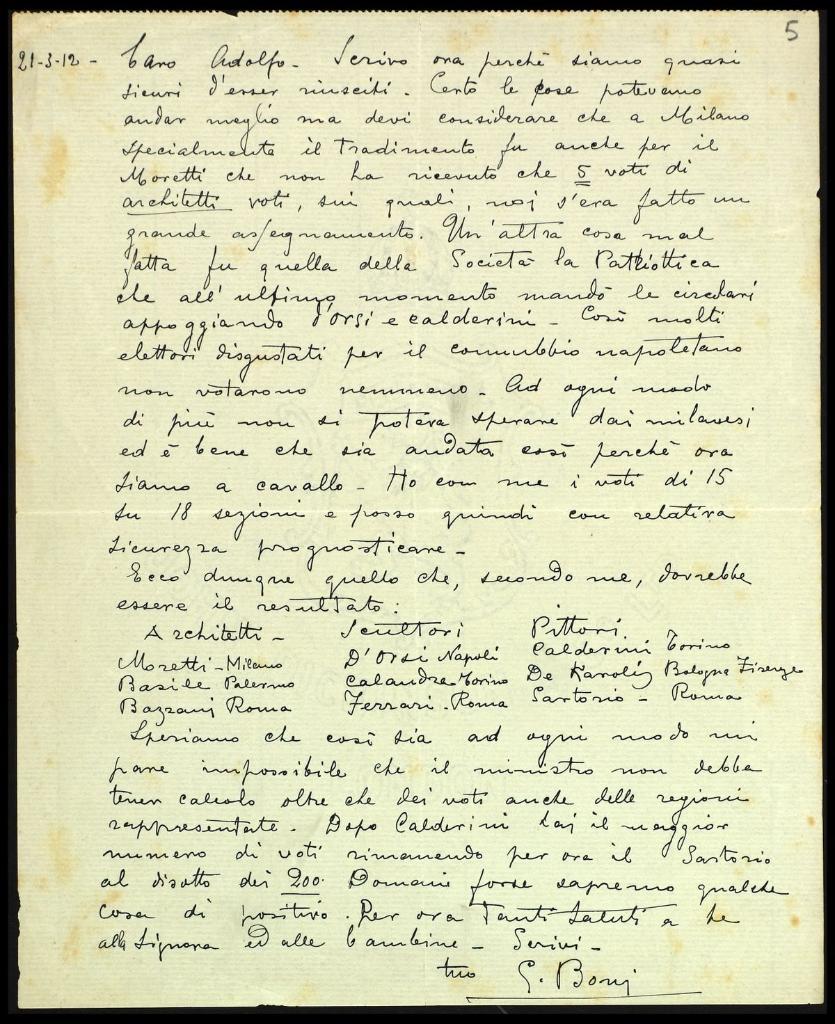 5
21-3-12 - Caro Adolfo - Scrivo ora perchè siamo quasi
sicuri d'esser riusciti. Certo le cose potevano
andar meglio ma devi considerare che a Milano
specialmente il tradimento fu anche per il
Moretti che non ha ricevuto che 5 voti di
architetti voti, sui quali, noi s'era fatto un
grande assegnamento. Un'altra cosa mal
fatta fu quella della Società la Patriottica
che all'ultimo momento mandò le circolari
appoggiando d'Orsi e Calderini - Così molti
elettori disgustati per il connubbio napoletano
non votarono nemmeno - Ad ogni modo
di più non si poteva sperare dai milanesi
ed è bene che sia andata così perchè ora
siamo a cavallo - Ho con me i voti di 15
su 18 sezioni e posso quindi con relativa
sicurezza prognosticare -
Ecco dunque quello che, secondo me, dovrebbe
essere il resultato:
Architetti - Scultori Pittori.
Moretti - Milano D'Orsi Napoli Calderini Torino
Basile Palermo Calandra Torino De Karolis Bologna Firenze
Bazzani Roma Ferrari - Roma Sartorio - Roma
Speriamo che così sia ad ogni modo mi
pare impossibile che il ministro non debba
tener calcolo oltre che dei voti anche delle regioni
rappresentate. Dopo Calderini hai il maggior
numero di voti rimanendo per ora il Sartorio
al disotto dei 200. Domani forse sapremo qualche
cosa di positivo. Per ora tanti saluti a te
alla Signora ed alle bambine - Scrivi -
tuo G. Boni